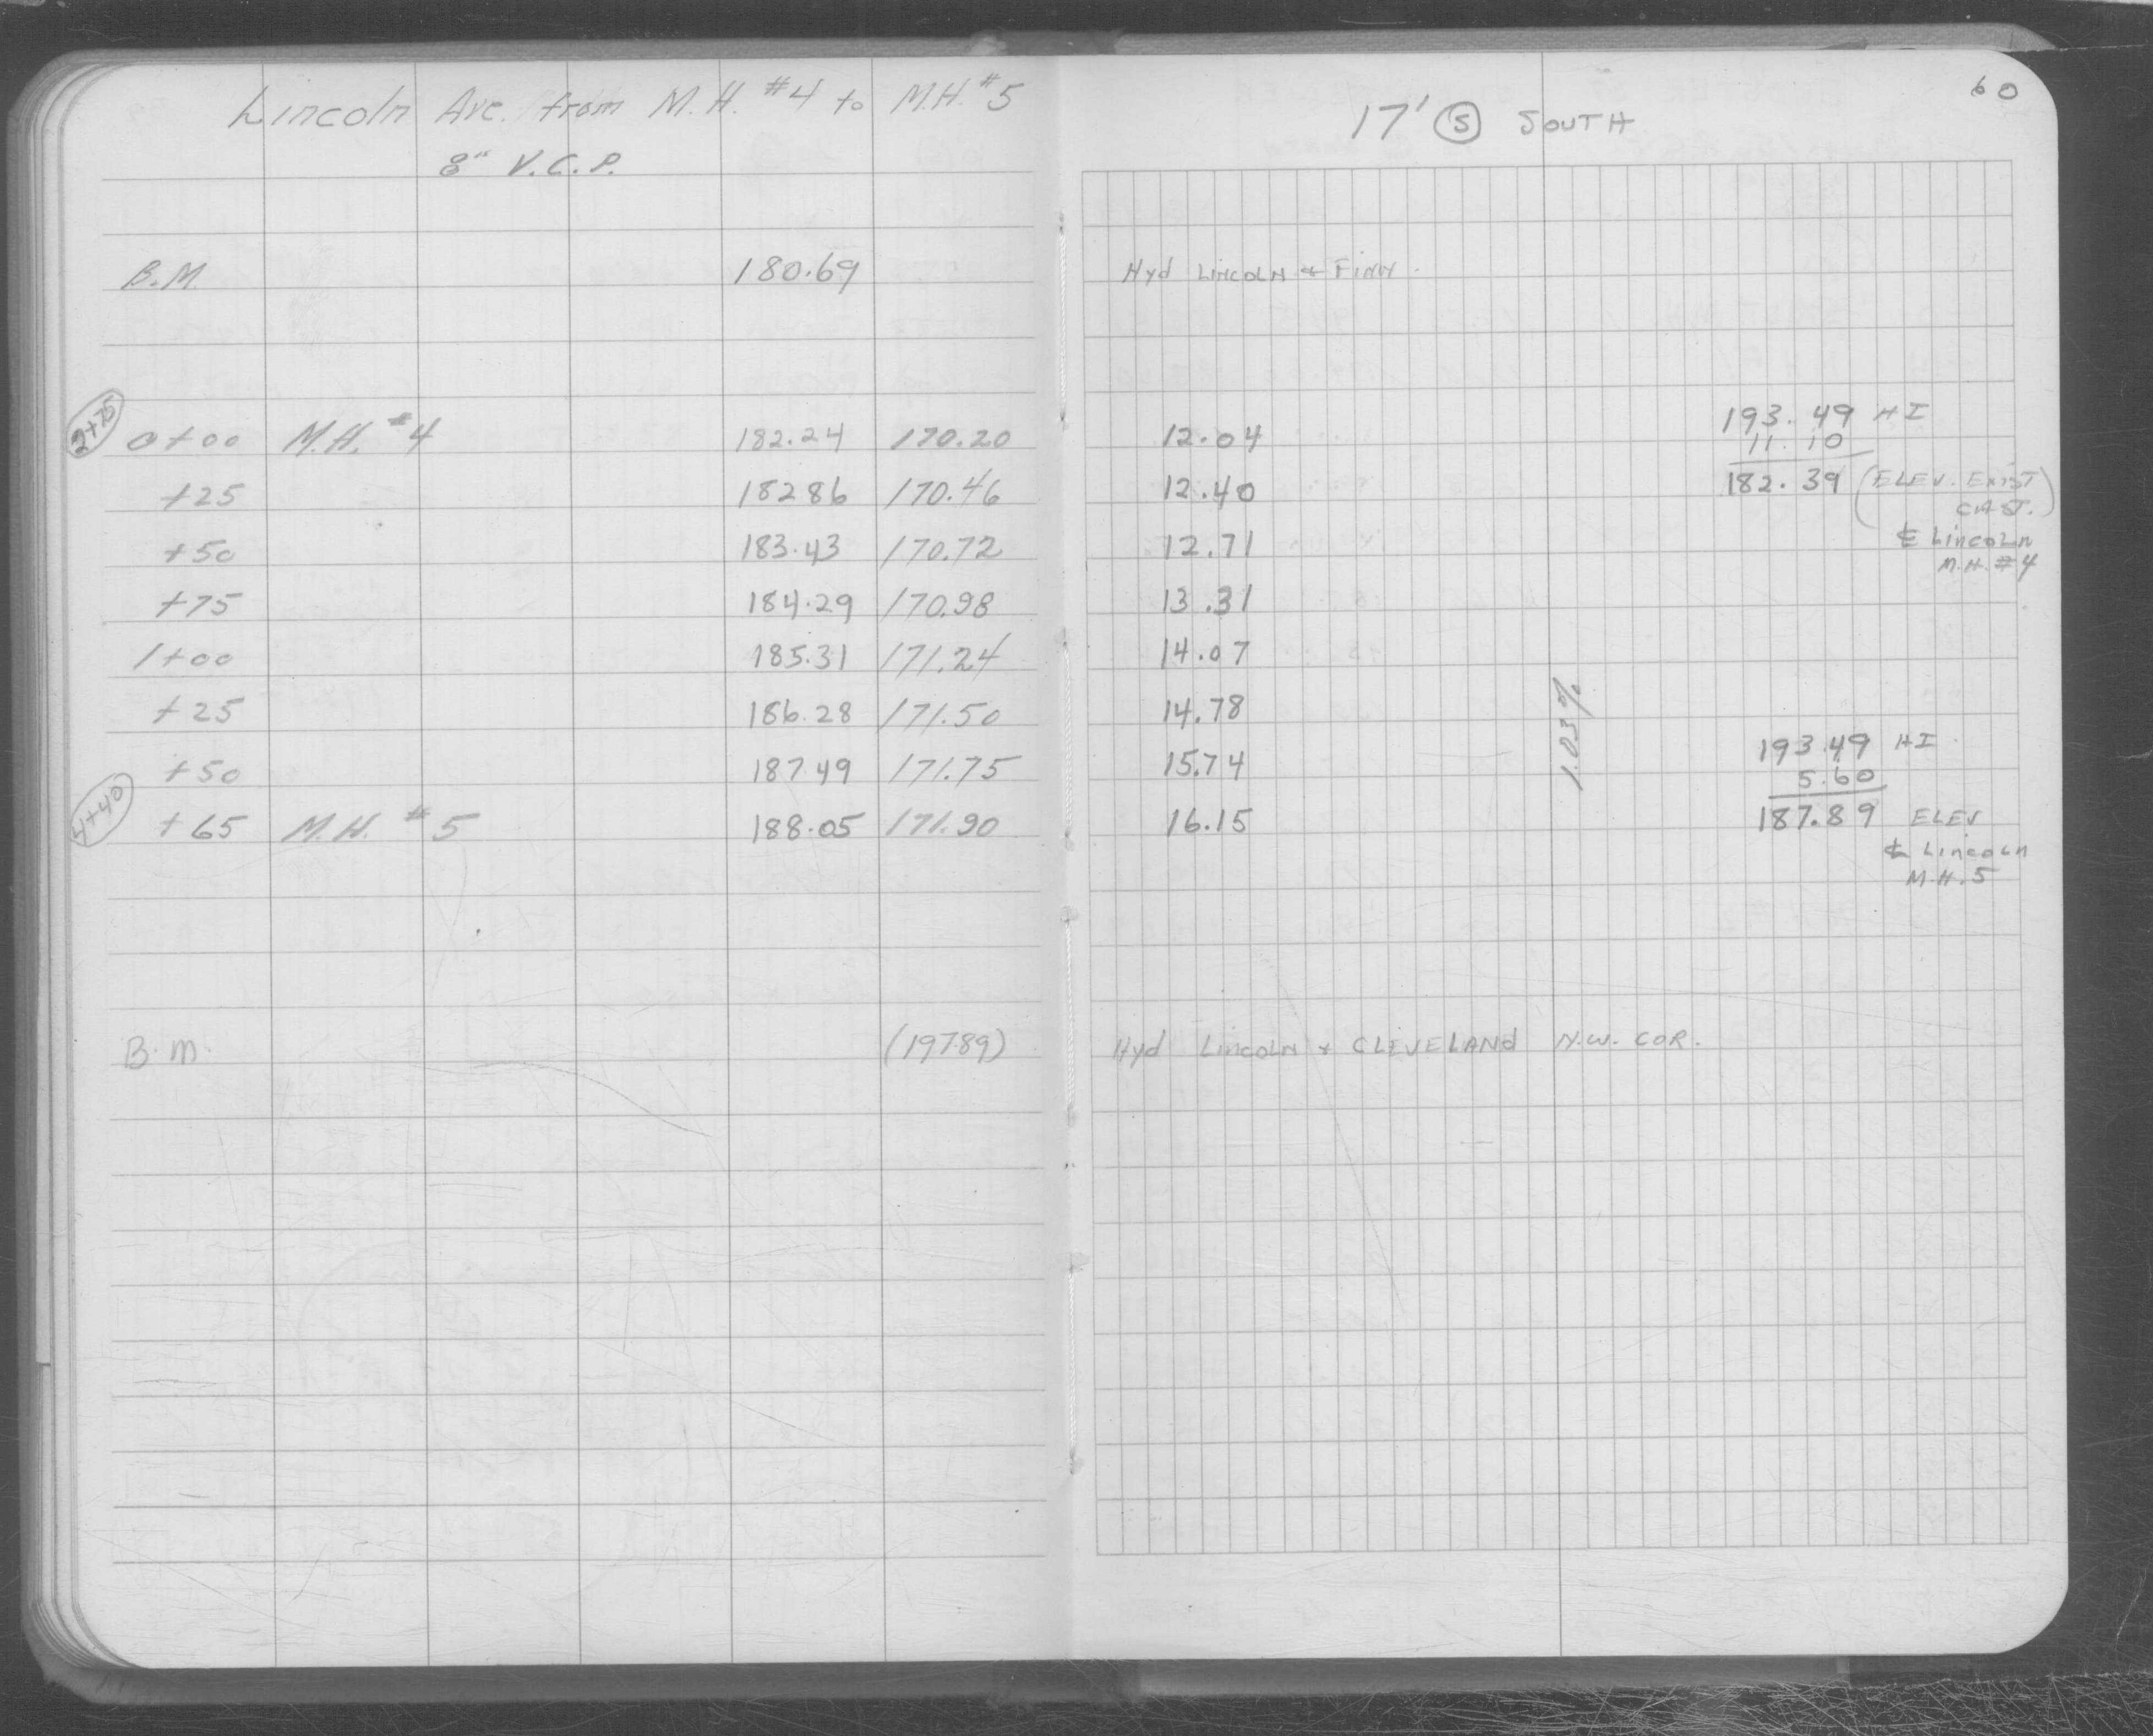 Lincoln Ave. from M.H. #4 to M.H. #5
8" V.C.P.
B.M. 180.69
2+75
0+00 M.H. #4 182.24 170.20
+25 182 86 170.46
+50 183.43 170.72
+75 184.29 170.98
1+00 185.31 171.24
+25 186.28 171.50
+50 187 49 171.75
4+40
+65 M.H. #5 188.05 171.90
B.M. (197.89)
60
17' S SOUTH
Hyd LINCOLN + FINN.
12.04
12.40
12.71
13.31
14.07
14.78
15.74
16.15
1.03%
193.49 HI
11.10
182.39 (ELEV. EXIST
CAST.)
℄ LINCOLN
M.H. #4
193.49 HI
5.60
187.89 ELEV
℄ LINCOLN
M.H. 5
Hyd LINCOLN + CLEVELAND N.W. COR.